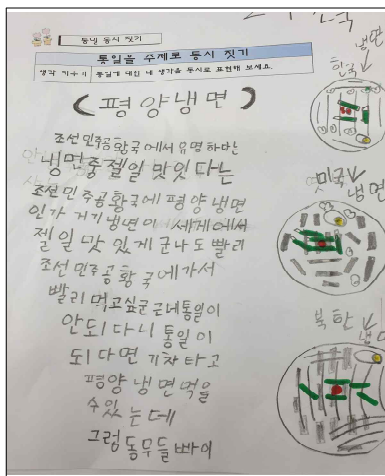 통일 동시 짓기
통일을 주제로 동시 짓기
생각 키우기 통일에 대한 내 생각을 동시로 표현해 보세요.
(평양냉면)
조선민주공황국에서 유명하다는
냉면중젤일 맛잇다는
조선민주공황국에 평양냉면
인가 거기냉면이 세게에서
젤일맛있게군나도빨리
조선민주공황국에가서
빨리먹고싶군근네통일이
안되다니 통일이
되다면기차타고
평양냉면먹을
수있는데
그럼동무들빠이
한국
냉면
미국
냉면
북한